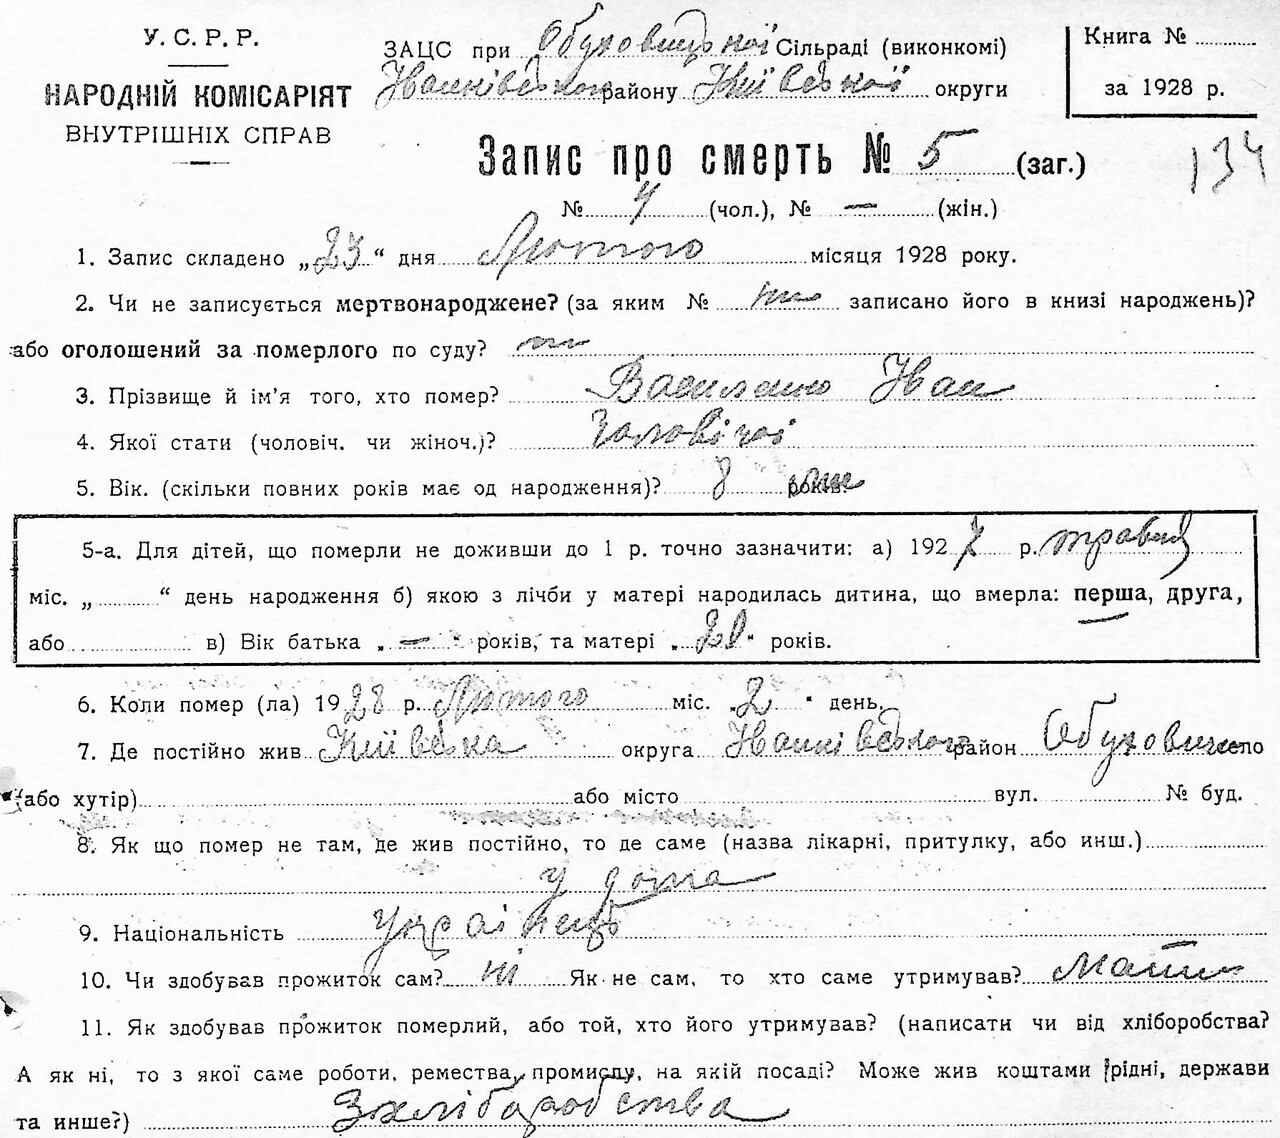 У. С. Р. Р.
НАРОДНІЙ КОМІСАРІЯТ
ВНУТРІШНІХ СПРАВ
ЗАЦС при Обуховицької Сільраді (виконкомі)
Іванківського району Київської округи
Книга №
за 1928 р.
Запис про смерть № 5 (заг.)
134
№ 4 (чол.), № — (жін.)
1. Запис складено „23“ дня Лютого місяця 1928 року.
2. Чи не записується мертвонароджене? (за яким № ні записано його в книзі народжень)?
або оголошений за померлого по суду? ні
3. Прізвище й ім'я того, хто помер? Василенко Іван
4. Якої стати (чоловіч. чи жіноч.)? Чоловічої
5. Вік. (скільки повних років має од народження)? 8 років.
5-а. Для дітей, що померли не доживши до 1 р. точно зазначити: а) 1927 р. травня
міс. „ “ день народження б) якою з лічби у матері народилась дитина, що вмерла: перша, друга,
або в) Вік батька „ — “ років, та матері „20“ років.
6. Коли помер (ла) 1928 р. Лютого міс. „2“ день.
7. Де постійно жив Київська округа Іванківського район Обуховичі село
(або хутір) або місто вул. № буд.
8. Як що помер не там, де жив постійно, то де саме (назва лікарні, притулку, або инш.)
у дома
9. Національність Українець
10. Чи здобував прожиток сам? ні Як не сам, то хто саме утримував? Мати
11. Як здобував прожиток померлий, або той, хто його утримував? (написати чи від хліборобства?
А як ні, то з якої саме роботи, ремества, промислу, на якій посаді? Може жив коштами рідні, держави
та инше?) З хліборобства